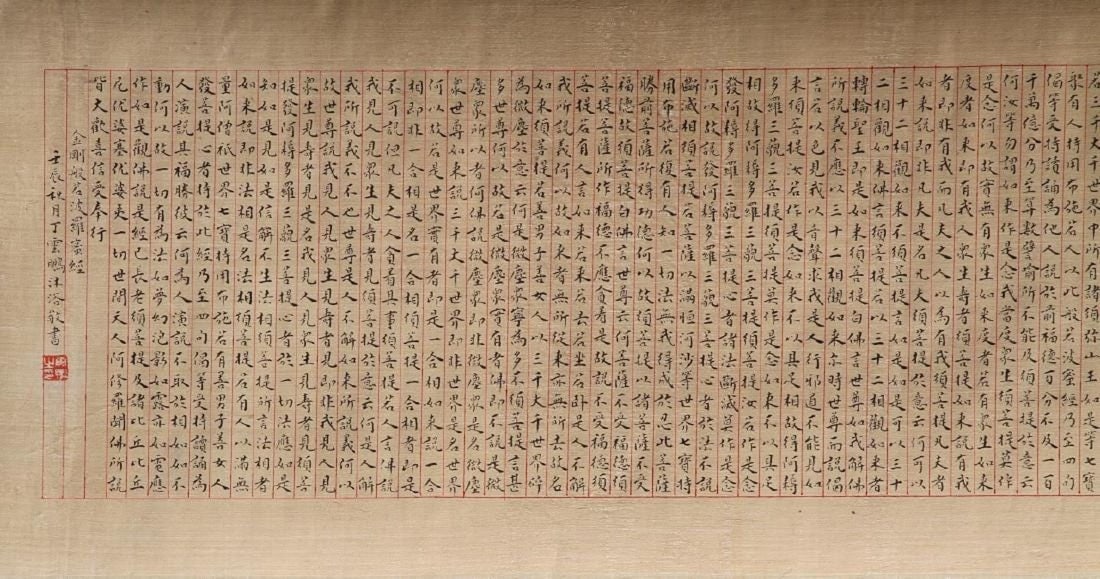 若三千大千世界中所有諸須弥山王如是等七寶
聚有人持用布施若人以此般若波蜜經乃至四句
偈等受持讀誦為他人說於前福德百分不及一百
千萬億分乃至算數譬喻所不能及須菩提於意云
何汝等勿謂如来作是念我當度衆生須菩提莫作
是念何以故實無有衆生如来度者若有衆生如来
度者如来即有我人衆生壽者須菩提如来說有我
者即非有我而凡夫之人以為有我須菩提凡夫者
如来說即非凡夫是名凡夫須菩提於意云何可以
三十二相觀如来不須菩提言如是如是可以三十
二相觀如来佛言須菩提若以三十二相觀如来者
轉輪聖王即是如来須菩提白佛言世尊如我解佛
所說義不應以三十二相觀如来尔時世尊而說偈
言若以色見我以音聲求我是人行邪道不能見如
来須菩提汝若作是念如来不以具足相故得阿耨
多羅三藐三菩提須菩提莫作是念如来不以具足
相故得阿耨多羅三藐三菩提須菩提汝若作是念
發阿耨多羅三藐三菩提心者諸法斷滅莫作是念
何以故發阿耨多羅三藐三菩提心者於法不說
斷滅相須菩提若菩薩以滿恒河沙等世界七寶持
用布施若復有人知一切法無我得成於忍此菩薩
勝前菩薩所得功德何以故須菩提以諸菩薩不受
福德故須菩提白佛言世尊云何菩薩不受福德須
菩提菩薩所作福德不應貪着是故說不受福德須
菩提若有人言如来若来若去若坐若卧是人不解
我所說義何以故如来者無所從来亦無所去故名
如来須菩提若善男子善女人以三千大千世界碎
為微塵於意云何是微塵衆寧為多不須菩提言甚
多世尊何以故若是微塵衆實有者佛即不說是微
塵衆所以者何佛說微塵衆即非微塵衆是名微塵
衆世尊如来說三千大千世界即非世界是名世界
何以故若是世界實有者即是一合相如来說一合
相即非一合相是名一合相須菩提一合相者即是
不可說但凡夫之人貪着其事須菩提若人言佛說
我見人見衆生見壽者見須菩提於意云何是人解
我所說義不不也世尊是人不解如来所說義何以
故世尊說我見人見衆生見壽者見即非我見人見
衆生見壽者見是名我見人見衆生見壽者見須菩
提發阿耨多羅三藐三菩提心者於一切法應如是
知如是見如是信解不生法相須菩提所言法相者
如来說即非法相是名法相須菩提若有人以滿無
量阿僧祇世界七寶持用布施若有善男子善女人
發菩提心者持於此經乃至四句偈等受持讀誦為
人演說其福勝彼云何為人演說不取於相如如不
動何以故一切有為法如夢幻泡影如露亦如電應
作如是觀佛說是經已長老須菩提及諸比丘比丘
尼優婆塞優婆夷一切世間天人阿修羅聞佛所說
皆大歡喜信受奉行
金剛般若波羅蜜經
壬辰秋月丁雲鵬沐浴敬書